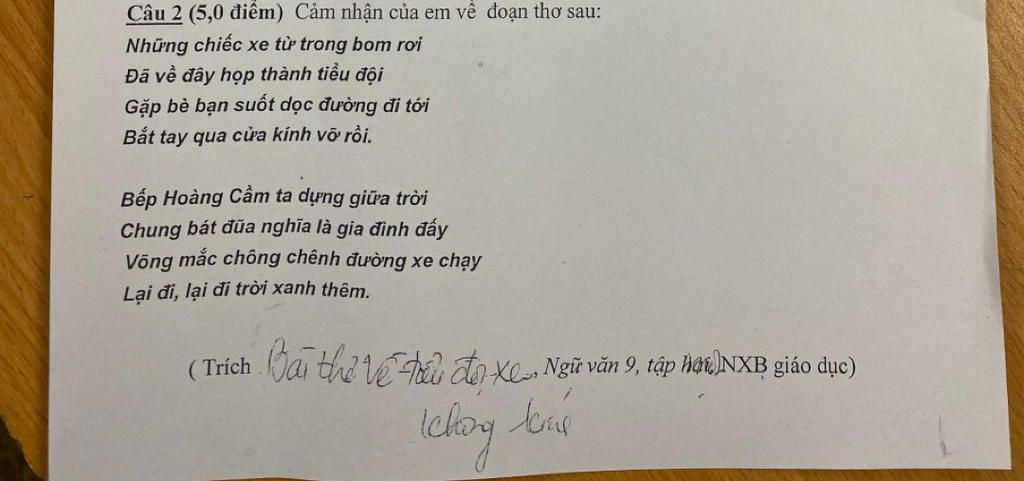 Câu 2 (5,0 điểm) Cảm nhận của em về đoạn thơ sau:
Những chiếc xe từ trong bom rơi
Đã về đây họp thành tiểu đội
Gặp bè bạn suốt dọc đường đi tới
Bắt tay qua cửa kính vỡ rồi.
Bếp Hoàng Cầm ta dựng giữa trời
Chung bát đũa nghĩa là gia đình đấy
Võng mắc chông chênh đường xe chạy
Lại đi, lại đi trời xanh thêm.
( Trích Bài thơ về tiểu đội xe, Ngữ văn 9, tập NXB giáo dục)
không kính